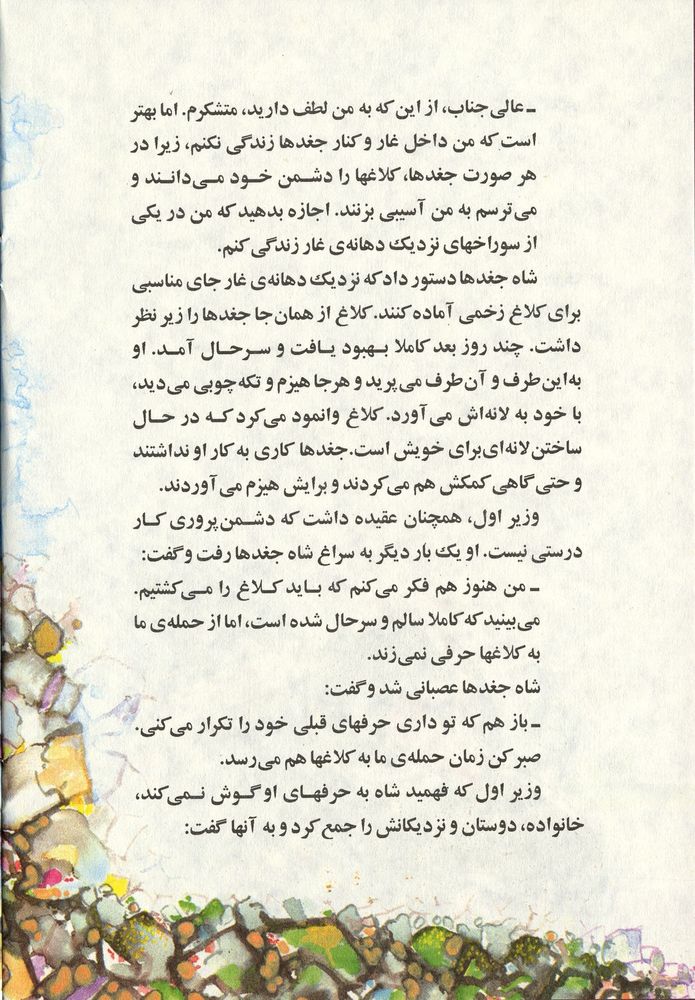 ـ عالی‌جناب، از این که به من لطف دارید، متشکرم. اما بهتر
است که من داخل غار و کنار جغدها زندگی نکنم، زیرا در
هر صورت جغدها، کلاغها را دشمن خـود مـی‌دانـند و
می‌ترسم به من آسیبی بزنند. اجازه بدهید که من در یکی
از سوراخهای نزدیک دهانه‌ی غار زندگی کنم.
شاه جغدها دستور داد که نزدیک دهانه‌ی غار جای مناسبی
برای کلاغ زخمی آماده کنند. کلاغ از همان‌جا جغدها را زیر نظر
داشت. چند روز بعد کاملا بـهبود یـافت و سـرحـال آمـد. او
به‌این‌طرف و آن‌طرف می‌پرید و هرجا هیزم و تکه چوبی می‌دید،
با خود به لانه‌اش می‌آورد. کلاغ وانمود می‌کرد کـه در حـال
ساختن لانه‌ای برای خویش است. جغدها کاری به کار او نداشتند
و حتی گاهی کمکش هم می‌کردند و برایش هیزم می‌آوردند.
وزیر اول، همچنان عقیده داشت که دشـمن‌پروری کـار
درستی نیست. او یک بار دیگر به سراغ شاه جغدها رفت و گفت:
ـ من هنوز هم فکر می‌کنم که بـاید کـلاغ را مـی‌کشتیم.
می‌بینید که کاملا سالم و سرحال شده است، اما از حمله‌ی ما
به کلاغها حرفی نمی‌زند.
شاه جغدها عصبانی شد و گفت:
ـ باز هم که تو داری حرفهای قبلی خود را تکرار می‌کنی.
صبر کن زمان حمله‌ی ما به کلاغها هم می‌رسد.
وزیر اول که فهمید شاه به حرفهـای او گـوش نـمی‌کند،
خانواده، دوستان و نزدیکانش را جمع کرد و به آنها گفت: